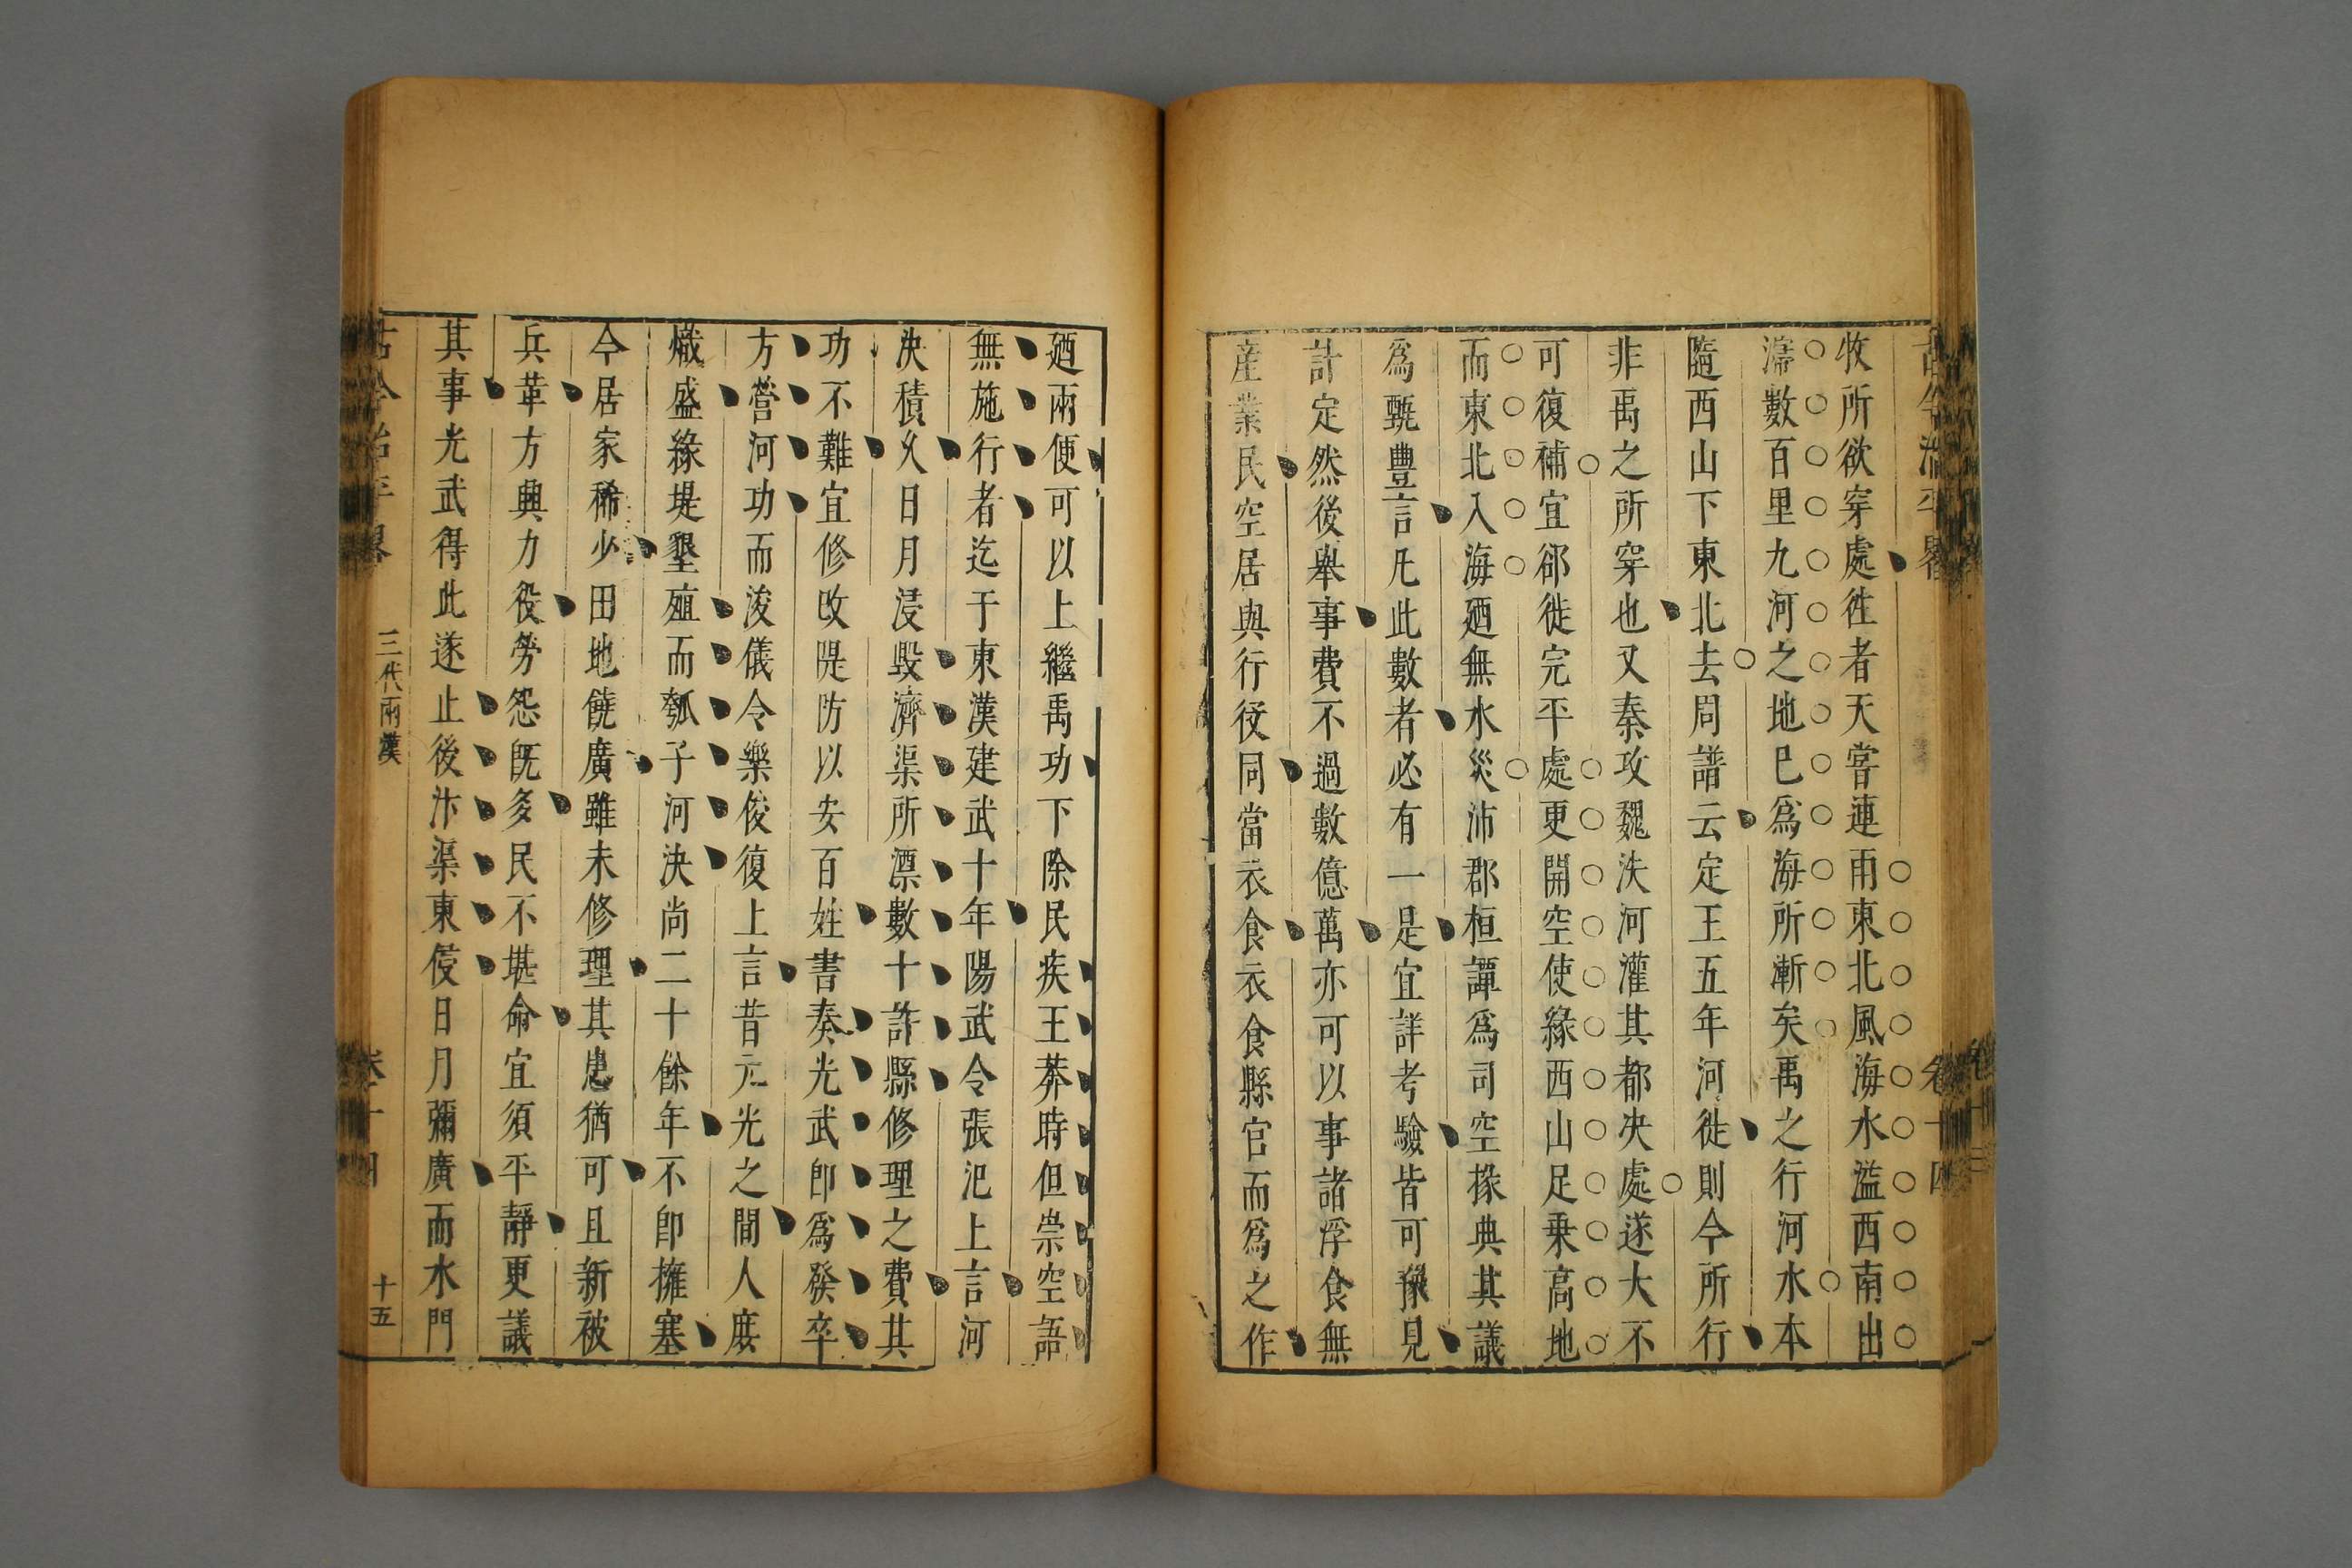 古今治平畧
卷十四
牧所欲穿處徃者天嘗連雨東北風海水溢西南出
濡數百里九河之地巳爲海所漸矣禹之行河水本
隨西山下東北去周譜云定王五年河徙則今所行
非禹之所穿也又秦攻魏决河灌其都决處遂大不
可復補宜郤徙完平處更開空使緣西山足乗高地
而東北入海廼無水災沛郡桓譚爲司空掾典其議
爲甄豐言凡此數者必有一是宜詳考驗皆可豫見
計定然後舉事費不過數億萬亦可以事諸浮食無
産業民空居與行役同當衣食衣食縣官而爲之作
廼兩便可以上繼禹功下除民疾王莽時但崇空語
無施行者迄于東漢建武十年陽武令張汜上言河
决積久日月浸毀濟渠所漂數十許縣修理之費其
功不難宜修改隄防以安百姓書奏光武卽爲發卒
方營河功而浚儀令樂俊復上言昔元光之間人庻
熾盛緣堤墾殖而瓠子河決尚二十餘年不卽擁塞
今居家稀少田地饒廣雖未修理其患猶可且新被
兵革方興力役勞怨旣多民不堪命宜須平靜更議
其事光武得此遂止後汴渠東侵日月彌廣而水門
古今治平畧
三代兩漢
卷十四
十五